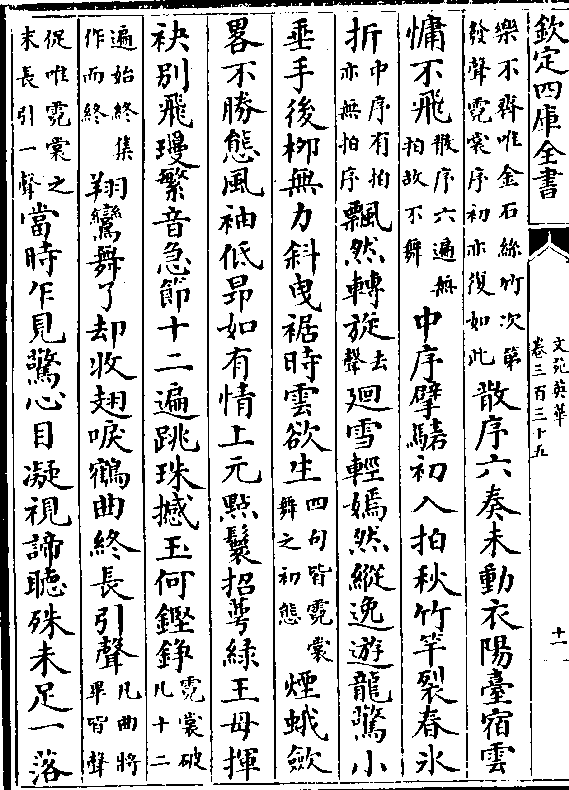 欽定四庫全書
文苑英華
卷三百三十五
十一
樂不齊唯金石絲竹次第
發聲霓裳序初亦復如此
散序六奏未動衣陽臺宿雲
慵不飛
散序六遍無
拍故不舞
中序擘騞初入拍秋竹竿裂春氷
折
中序有拍
亦無拍序
飄然轉旋
去
聲
廻雪輕嫣然縱逸遊龍驚小
垂手後栁無力斜曳裾時雲欲生
四句皆霓裳
舞之初態
煙蛾歛
畧不勝態風袖低昂如有情上元點鬟招蕚綠王母揮
袂别飛瓊繁音急節十二遍跳珠撼玉何鏗錚
霓裳破
凡十二
遍始終集
作而終
翔鸞舞了却收翅唳鶴曲終長引聲
凡曲將
畢皆聲
促唯霓裳之
末長引一聲
當時乍見驚心目凝視諦聽殊未足一落